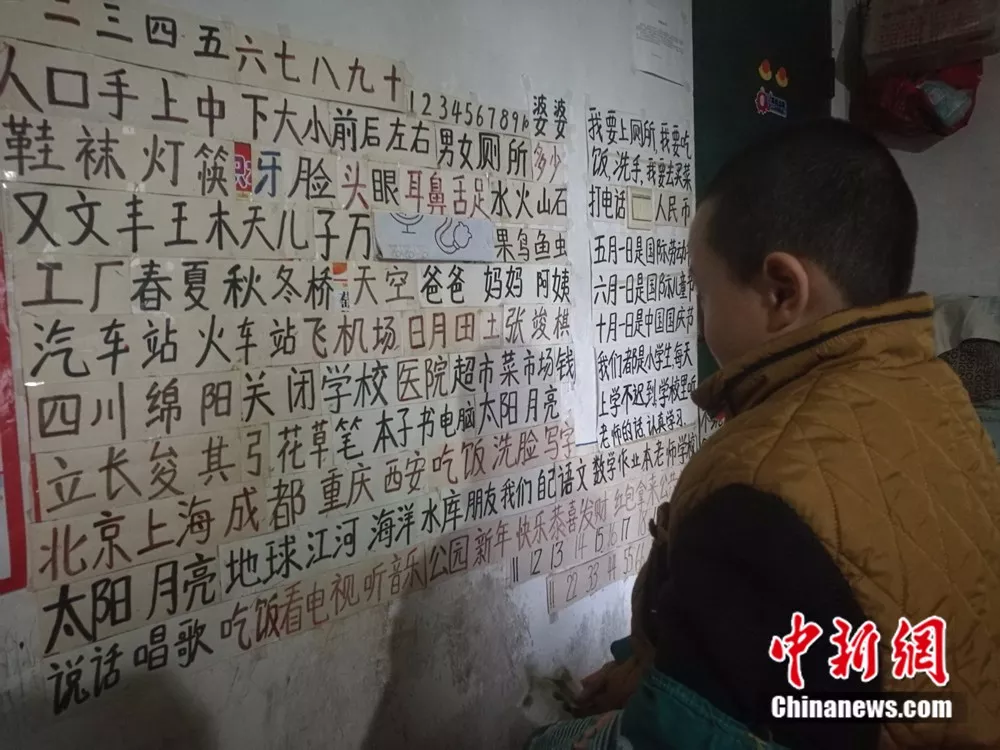 二三四五六七八九十
人口手上中下大小前后左右男女厕所多少
12345678910
婆婆
鞋袜灯筷牙脸头眼耳鼻舌足水火山石
又文丰王木天儿子万果鸟鱼虫
工厂春夏秋冬桥天空爸爸妈妈阿姨
汽车站火车站飞机场日月田土张竣棋
四川绵阳关闭学校医院超市菜市场钱
立长立夋其弓花草笔本子书电脑太阳月亮
北京上海成都重庆西安吃饭洗脸写字
太阳月亮地球江河海洋水库朋友我们自己语文数学作业本老师学校
说话唱歌吃饭看电视听音乐公园新年快乐恭喜发财红包拿来
11 12 13 14 15 16 17
11 22 33 4 55 6
我要上厕所,我要吃
饭,洗手,我要去买菜
打电话 人民币
五月一日是国际劳动
六月一日是国际儿童节
十月一日是中国国庆节
我们都是小学生,每天
上学不迟到,学校里听
老师的话,认真学习.
中新网
Chinanews.com